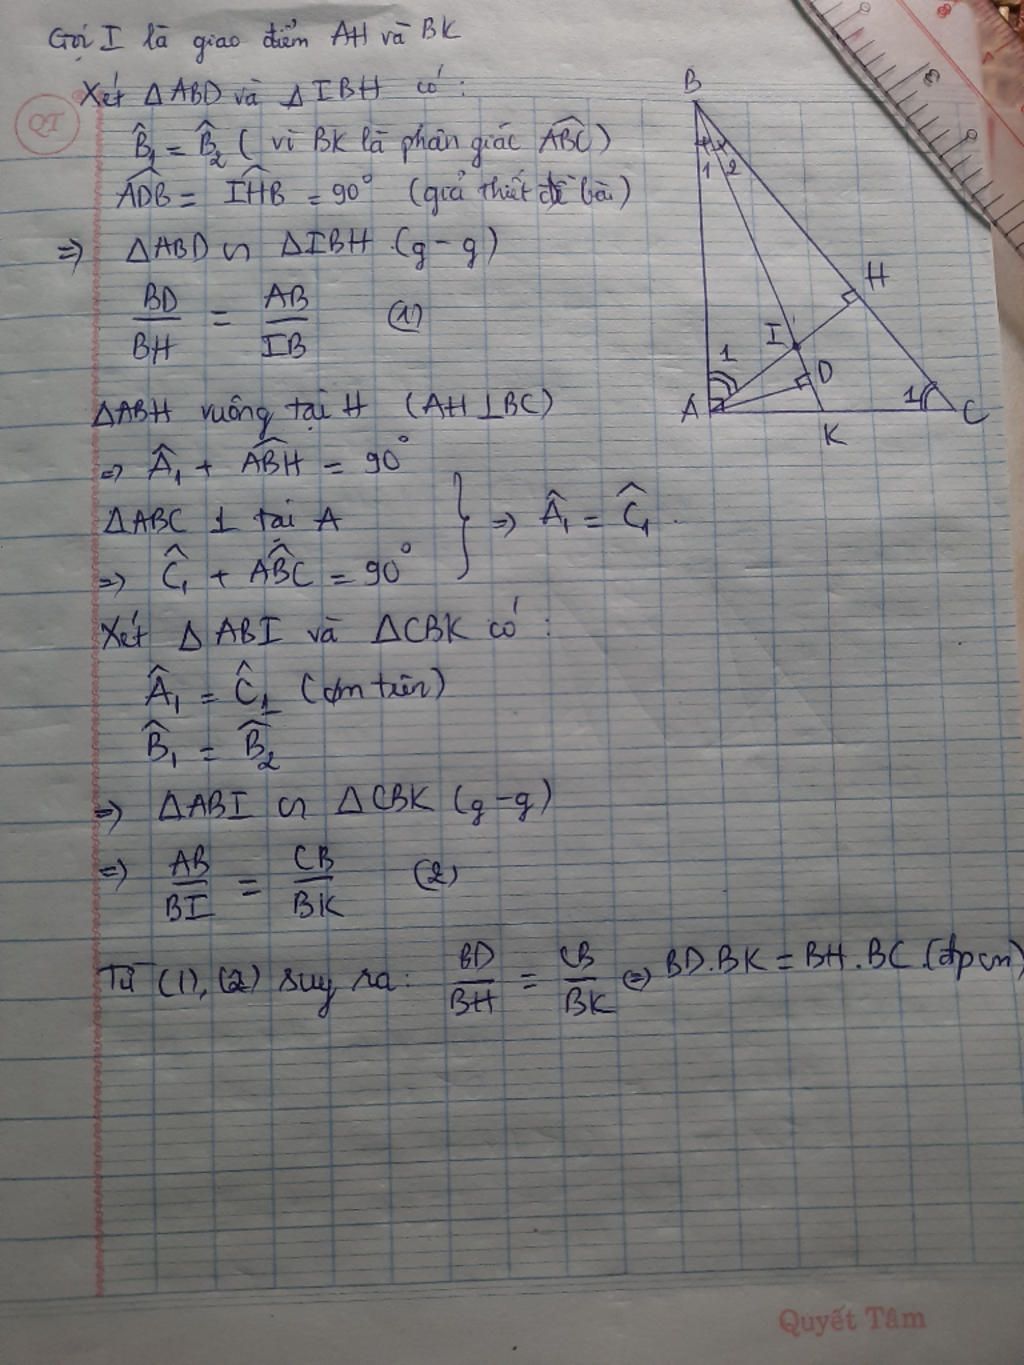 Gọi I là giao điểm AH và BK
Xét ΔABD và ΔIBH có :
QT
B̂₁ = B̂₂ ( vì BK là phân giác ABC̑)
ADB̑ = IHB̑ = 90° (giả thiết đề bài)
=> ΔABD ∽ ΔIBH (g-g)
BD/BH = AB/IB (1)
ΔABH vuông tại H (AH⊥BC)
=> Â₁ + ABH̑ = 90°
ΔABC ⊥ tại A
=> Ĉ₁ + ABC̑ = 90°
} => Â₁ = Ĉ₁.
Xét ΔABI và ΔCBK có :
Â₁ = Ĉ₁ (cm trên)
B̂₁ = B̂₂
=> ΔABI ∽ ΔCBK (g-g)
=> AB/BI = CB/BK (2)
Từ (1), (2) suy ra: BD/BH = CB/BK <=> BD.BK = BH.BC.(đpcm)
B
1 2
H
I
1
D
A
1
C
K
Quyết Tâm